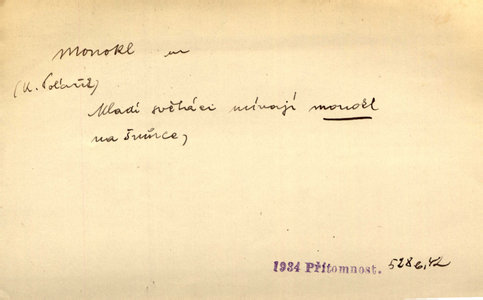 Monokl m
(K. Poláček)
Mladí světáci mívají monokl
na šňůrce,
1934 Přítomnost. 528